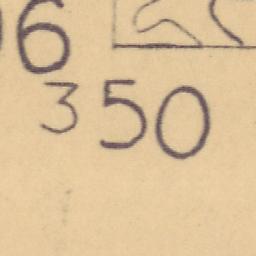 06
350